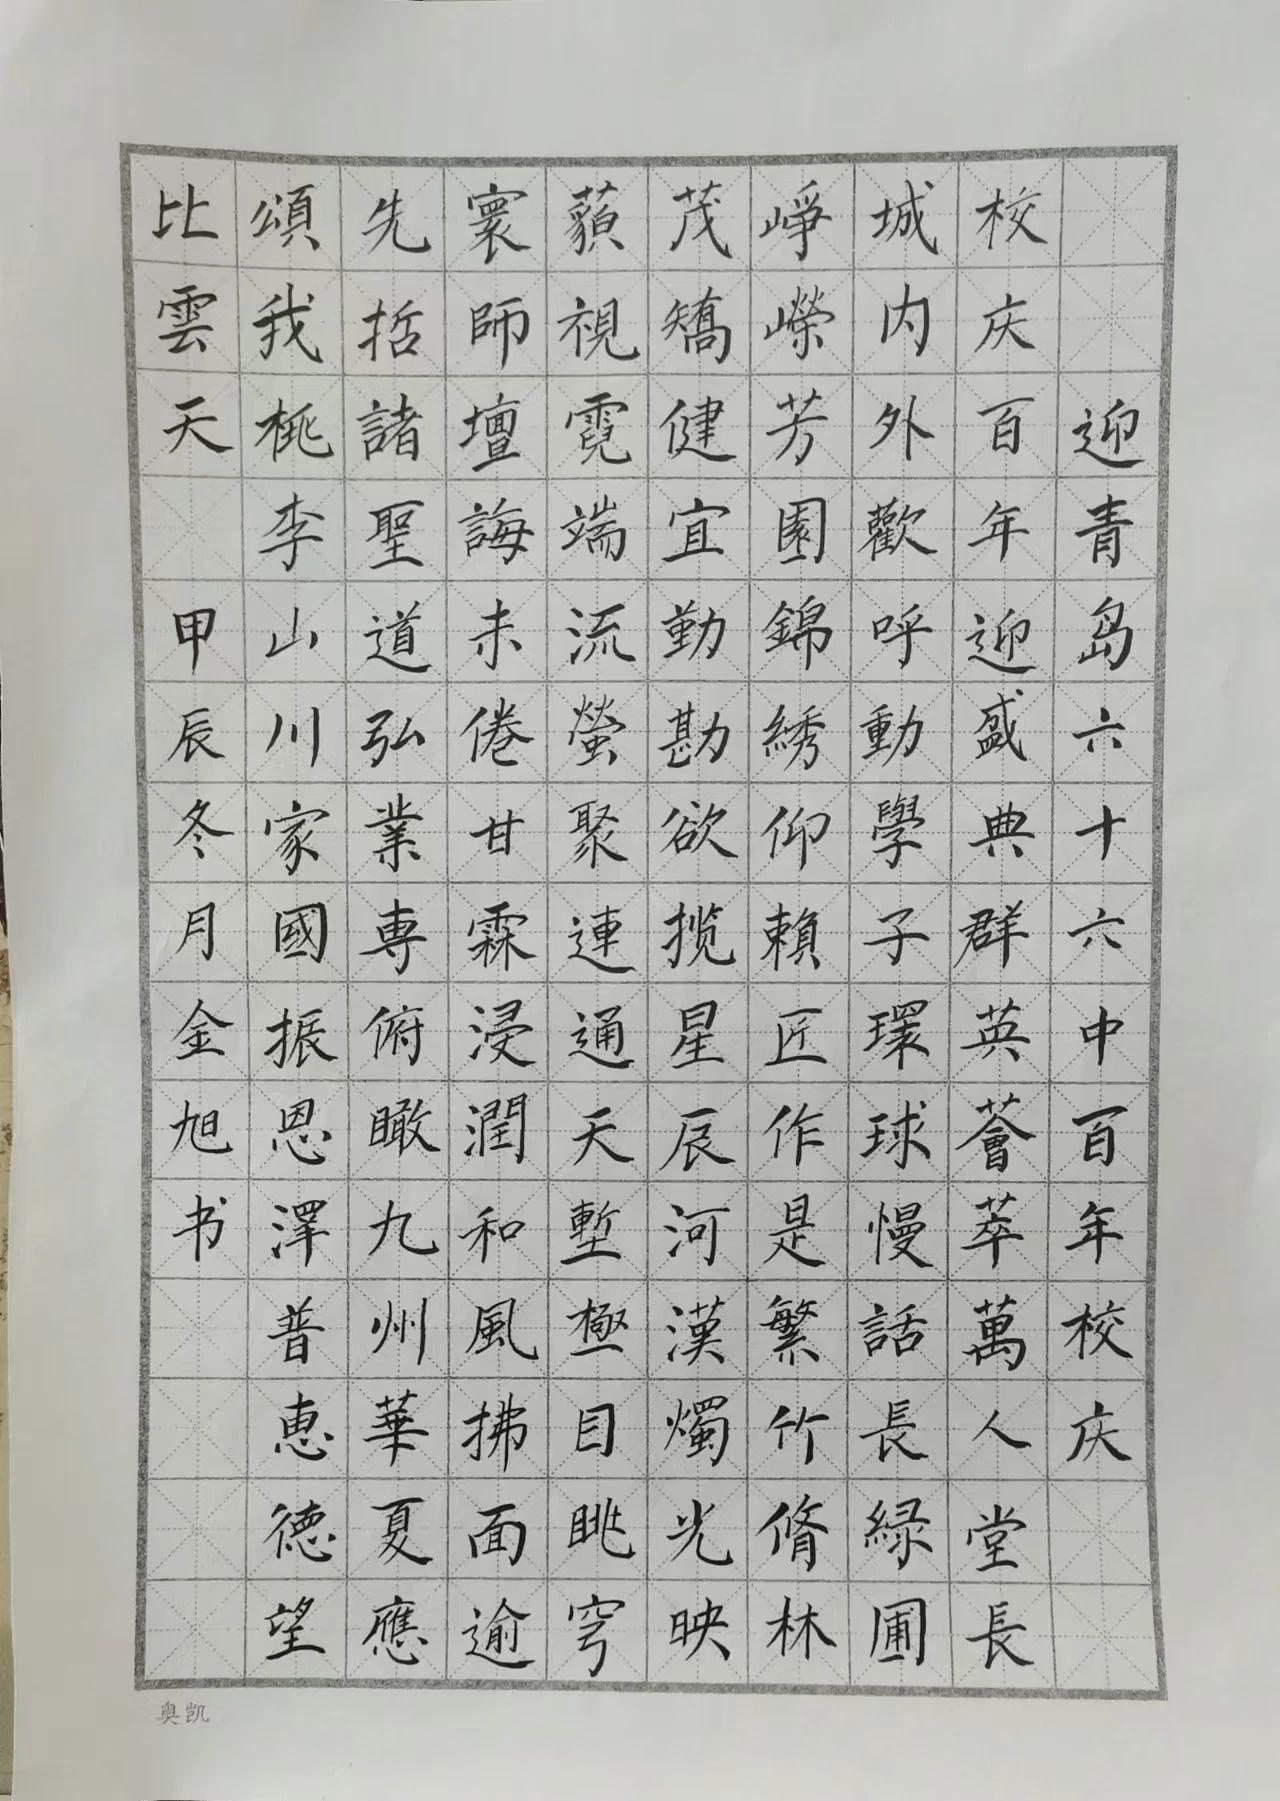 迎青岛六十六中百年校庆
校庆百年迎盛典群英薈萃萬人堂長
城内外歡呼動學子環球慢話長緑圃
崢嶸芳園錦綉仰賴匠作是繁竹脩林
茂矯健宜勤勘欲揽星辰河漢燭光映
藐視霓端流螢聚連通天塹極目眺穹
寰師壇誨未倦甘霖浸潤和風拂面逾
先哲諸聖道弘業専俯瞰九州華夏應
頌我桃李山川家國振恩澤普惠德望
比雲天 甲辰冬月金旭书
奥凯